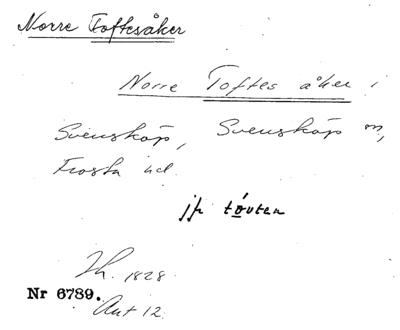 Norre Toftesåker
Norre Toftes åker i
Svensköp, Svensköp sn,
Frosta hd.
jfr tóvten
Lh. 1828.
Nr 6789.
Akt 12.